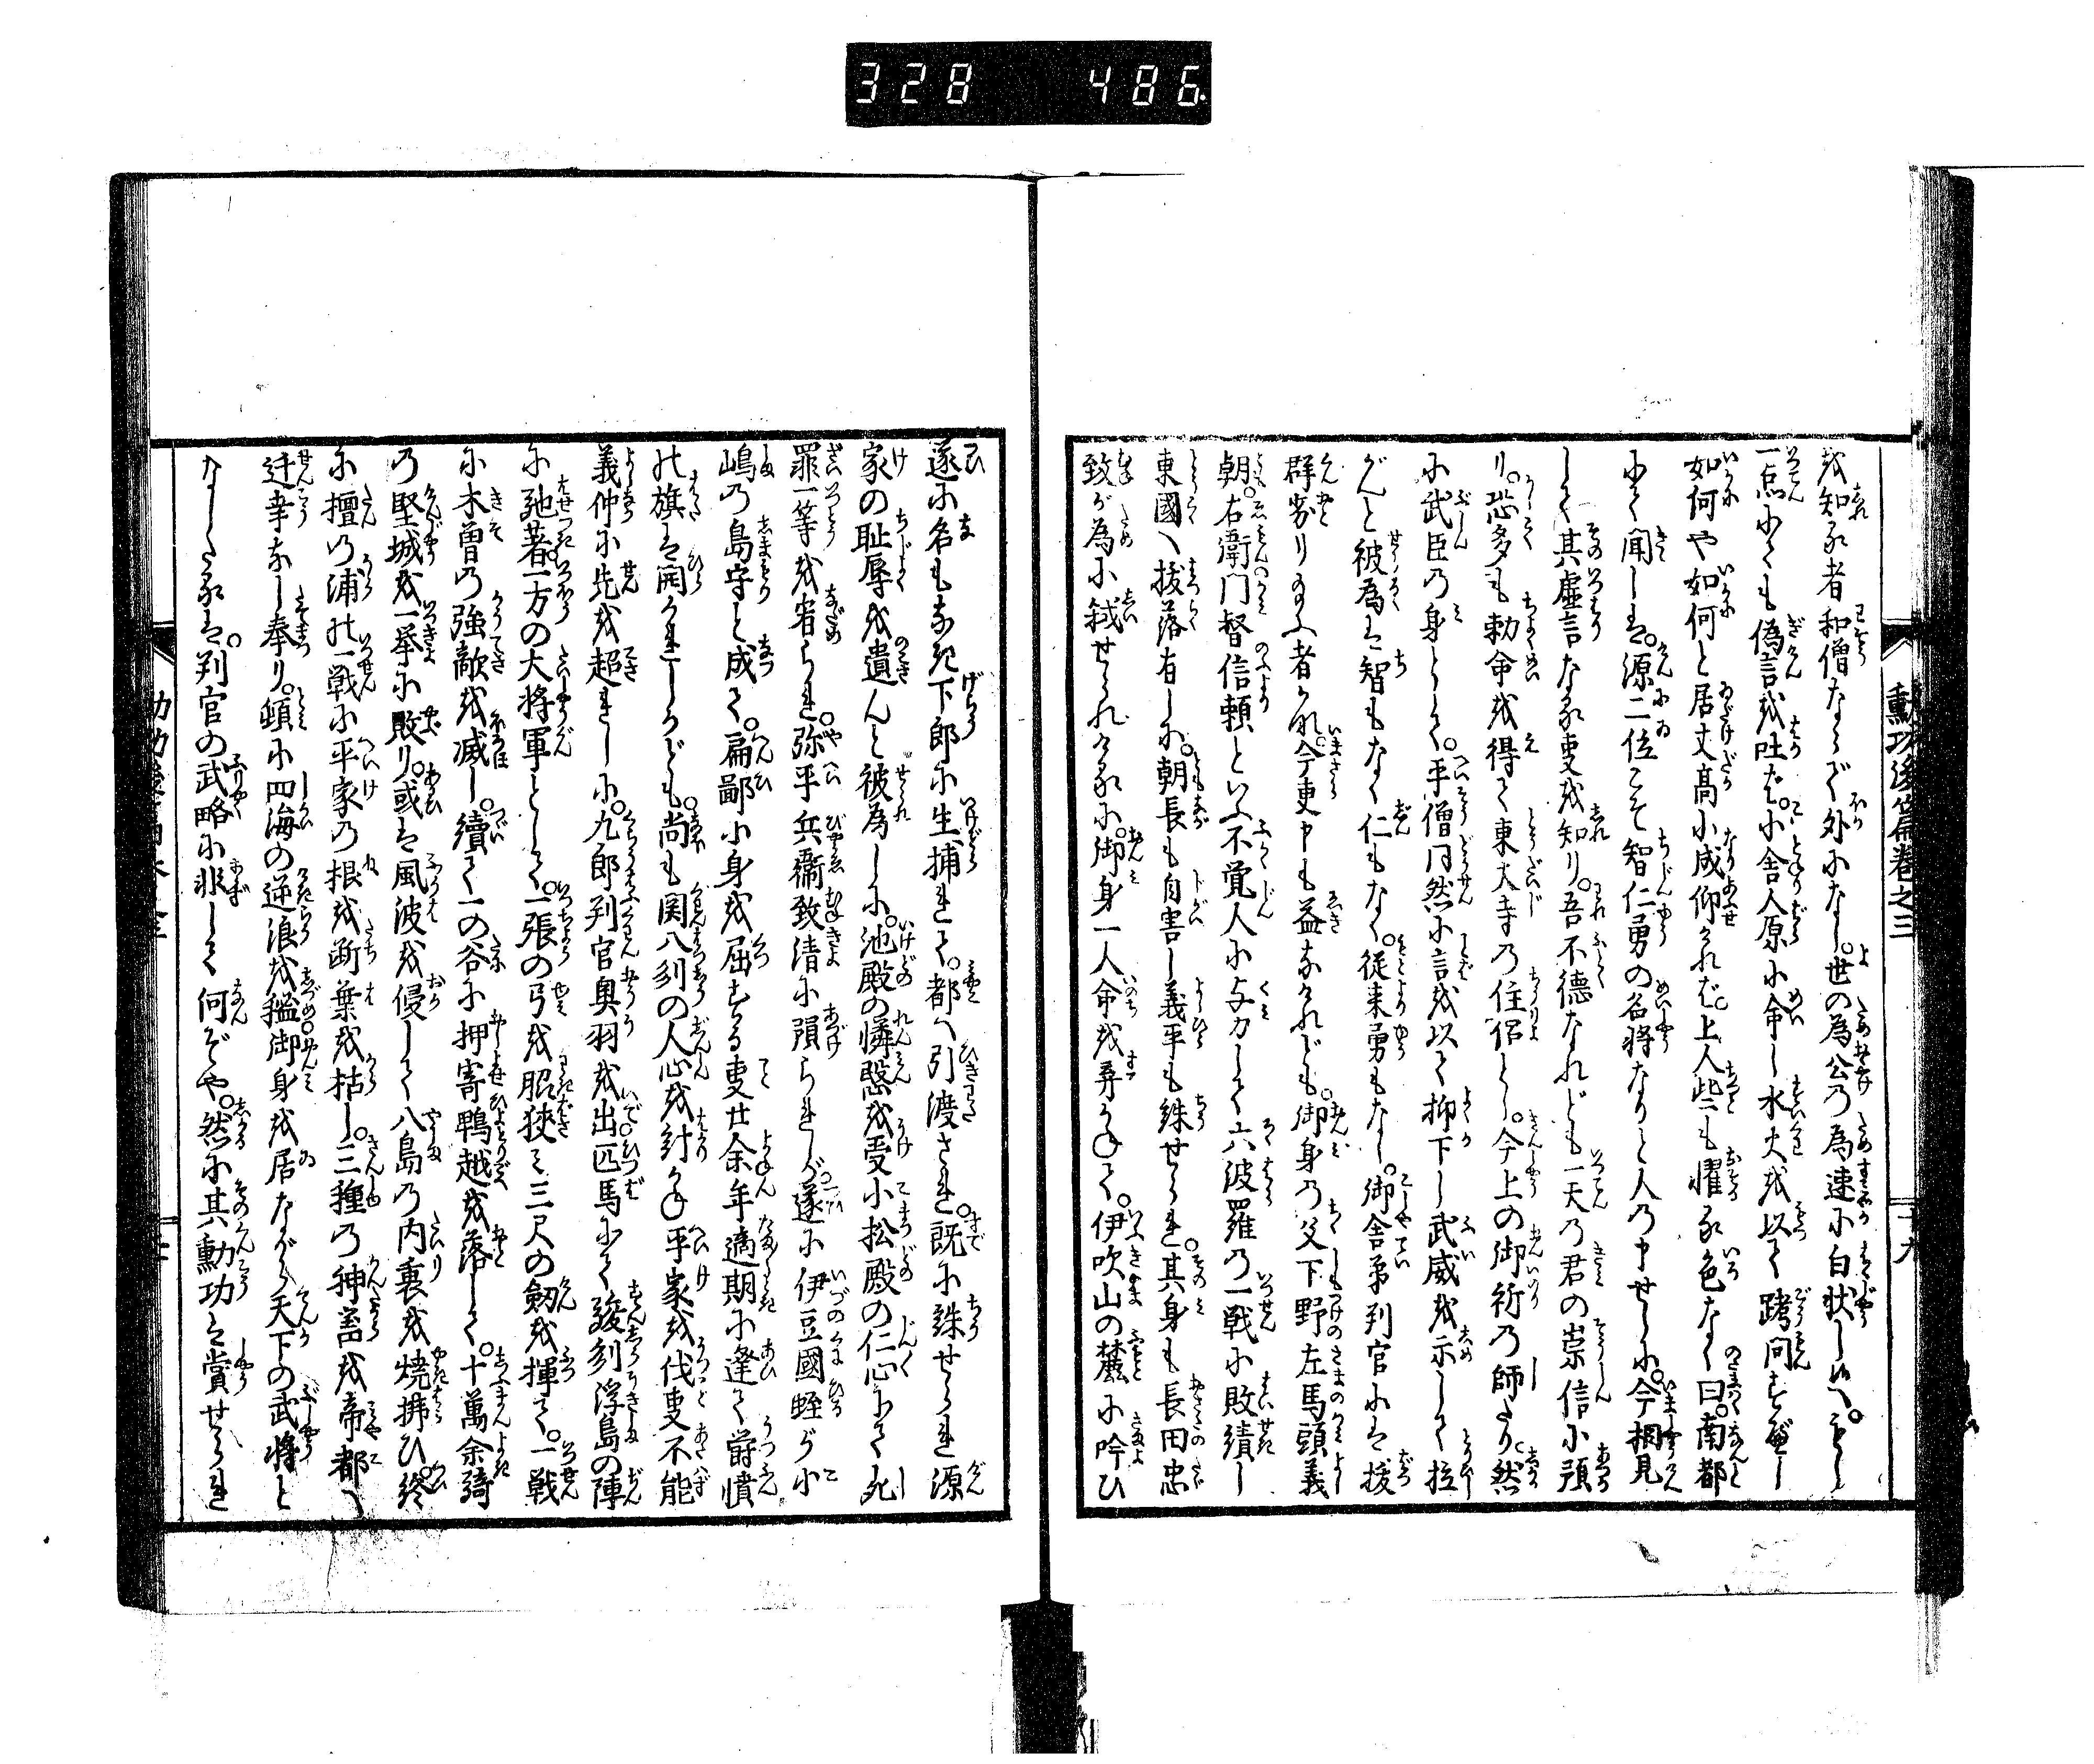 328 486
勲功後篇巻之三
十九
を知る者和僧ならで外になし。世の為公の為速に白状し給へ。もし
一点にても偽言を吐ば。小舎人原に命じ水火を以て拷問すべし
如何や如何と居丈高に成仰ければ。上人些も懼る色なく曰。南都
にて聞しは。源二位こそ智仁勇の名将なりと人の申せしに。今相見
して其虚言なる事を知り。吾不徳なれども一天の君の崇信に預
り。恐多も勅命を得て東大寺の住侶とし。今上の御祈の師たり。然
に武臣の身として。平僧同然に言を以て抑下し武威を示して拉
がんと被為は智もなく仁もなく。従来勇もなし。御舎弟判官には抜
群劣り給ふ者かな。今更申も益なけれども。御身の父下野左馬頭義
朝。右衛門督信頼といふ不覚人に与力して六波羅の一戦に敗績し
東國へ抜落有しに。朝長も自害し義平も誅せられ。其身も長田忠
致が為に弑せられけるに。御身一人命を拜かねて。伊吹山の麓に吟ひ
遂に名もなき下郎に生捕れて。都へ引渡され。既に誅せられ源
家の恥辱を遺んと被為しに。池殿の憐愍を受小松殿の仁心にて死
罪一等を宥られ。弥平兵衞致清に預られしが遂に伊豆國蛭が小
嶋の島守と成て。扁鄙に身を屈する事廿余年適期に逢て欝憤
の旗は開かれしかども。尚も関八刕の人心を計かね平家を伐事不能
義仲に先を超れしに。九郎判官奥羽を出匹馬にて駿刕浮島の陣
に馳著。一方の大将軍として。一張の弓を脇挟み三尺の劔を揮て。一戦
に木曽の強敵を滅し。續て一の谷に押寄鴨越を落して。十萬余騎
の堅城を一挙に敗り。或は風波を侵して八島の内裏を焼拂ひ。終
に檀の浦の一戦に平家の根を断葉を枯し。三種の神器を帝都へ
迁幸なし奉り。頓に四海の逆浪を穏。御身を居ながら天下の武将と
なしたるは。判官の武略に非して何ぞや。然に其勲功は賞せられ